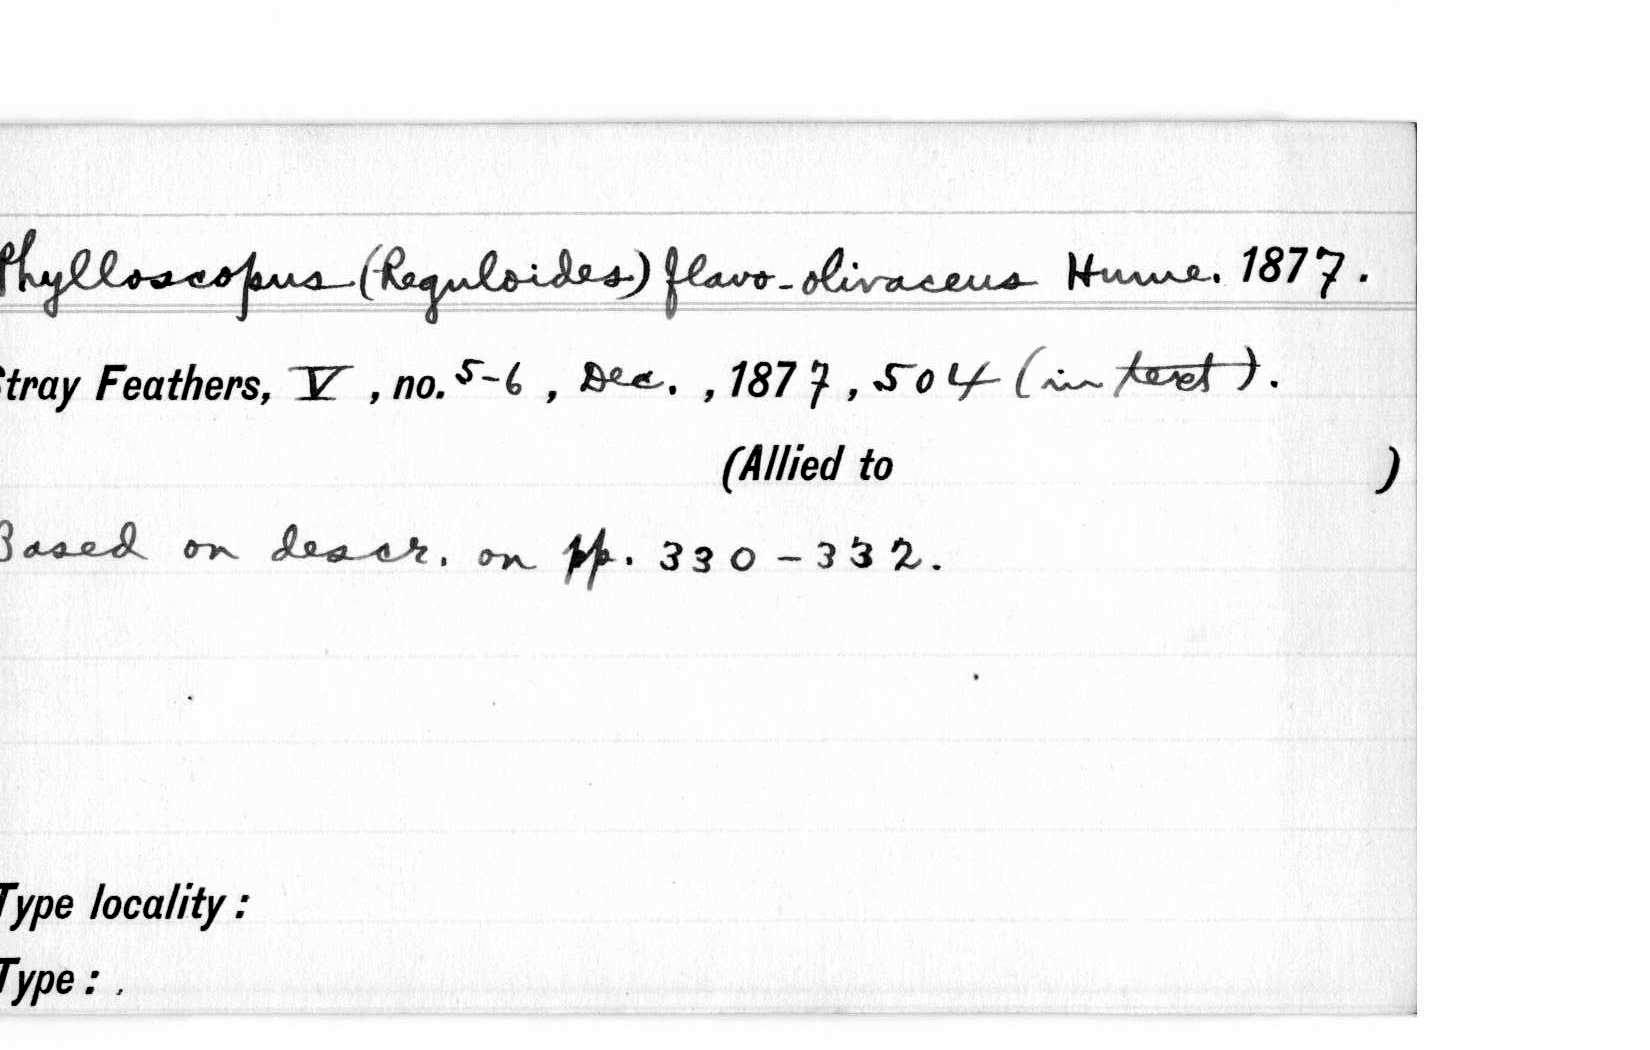 Phylloscopus (Reguloides) flavo-olivaceus Hume. 1877.
Stray Feathers, V, no. 5-6, Dec., 1877, 504 (in text).
(Allied to )
Based on descr. on pp. 330-332.
Type locality:
Type: